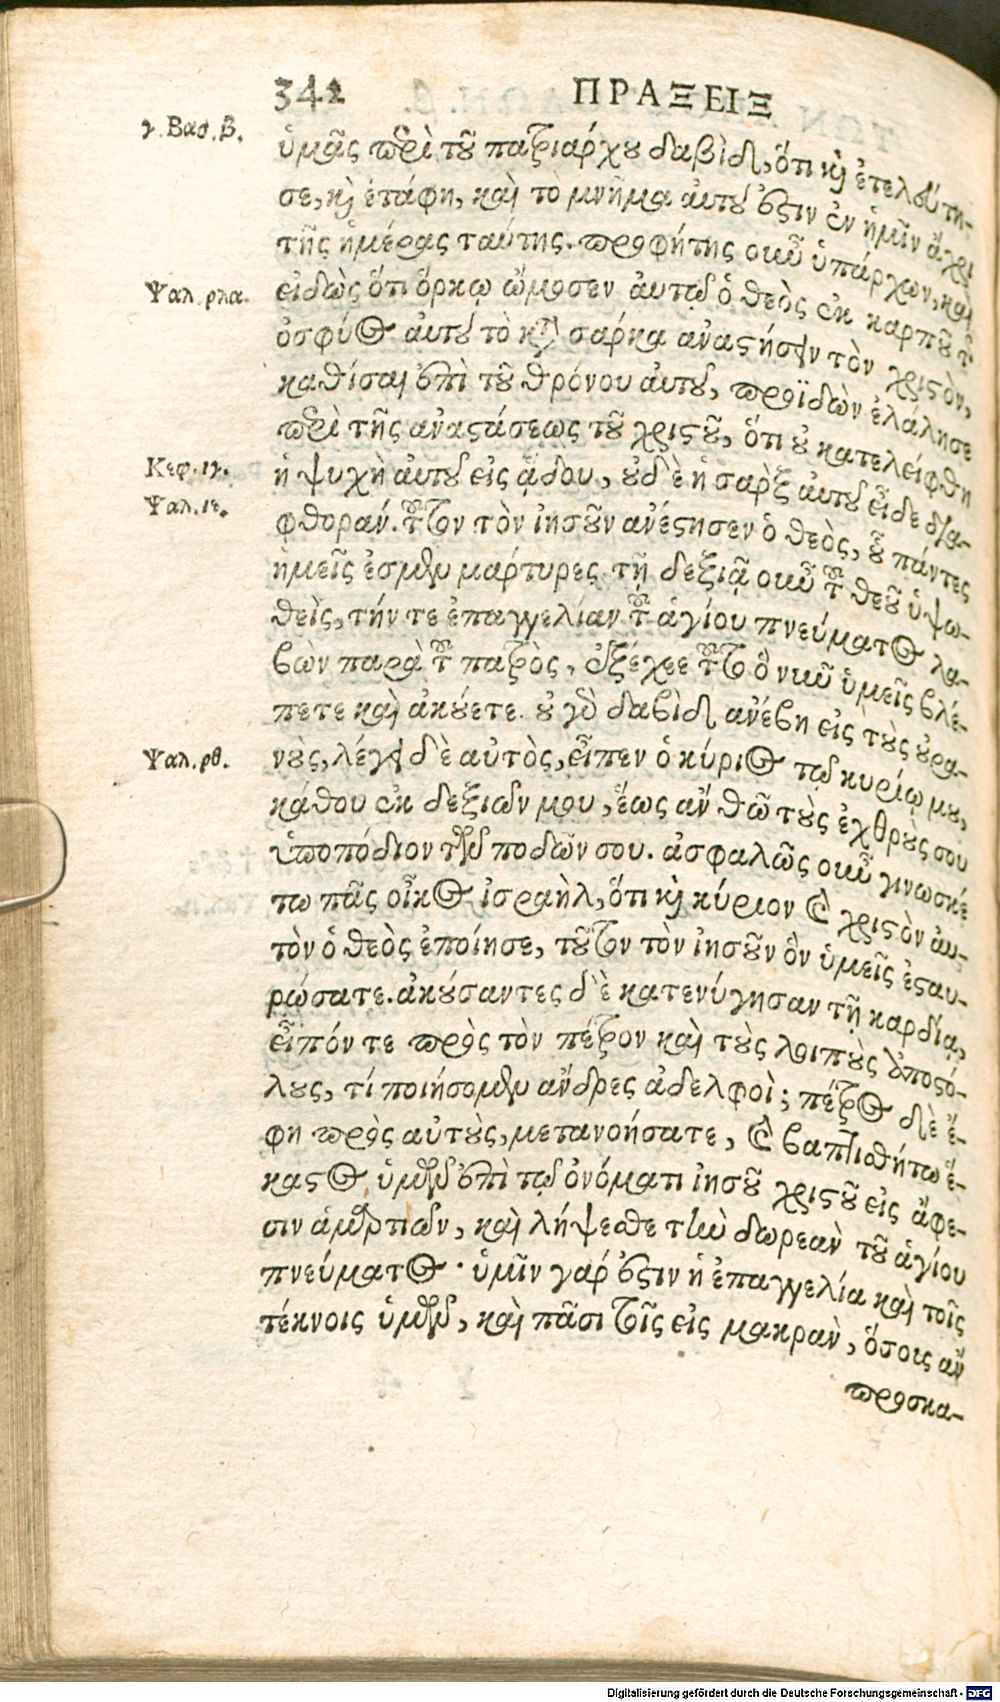 342 ΠΡΑΞΕΙΣ
γ. Βασ. β.
ὑμᾶς περὶ τοῦ πατριάρχου δαβὶδ, ὅτι καὶ ἐτελεύτη-
σε, καὶ ἐτάφη, καὶ τὸ μνῆμα αὐτοῦ ἔστιν ἐν ἡμῖν ἄχρι
τῆς ἡμέρας ταύτης. προφήτης οὖν ὑπάρχων, καὶ
Ψαλ. ρλα.
εἰδὼς ὅτι ὅρκῳ ὤμοσεν αὐτῷ ὁ θεὸς ἐκ καρποῦ τῆς
ὀσφύος αὐτοῦ τὸ κατὰ σάρκα ἀναστήσειν τὸν χριστὸν,
καθίσαι ἐπὶ τοῦ θρόνου αὐτοῦ, προϊδὼν ἐλάλησε
περὶ τῆς ἀναστάσεως τοῦ χριστοῦ, ὅτι οὐ κατελείφθη
Κεφ. ιγ.
ἡ ψυχὴ αὐτοῦ εἰς ᾅδου, οὐδὲ ἡ σαρξ αὐτοῦ εἶδε δια-
Ψαλ. ιε.
φθοράν. τοῦτον τὸν ἰησοῦν ἀνέστησεν ὁ θεὸς, οὗ πάντες
ἡμεῖς ἐσμεν μάρτυρες. τῇ δεξιᾷ οὖν τοῦ θεοῦ ὑψω-
θεὶς, τήν τε ἐπαγγελίαν τοῦ ἁγίου πνεύματος λα-
βὼν παρὰ τοῦ πατρὸς, ἐξέχεε τοῦτο ὃ νῦν ὑμεῖς βλέ-
πετε καὶ ἀκούετε. οὐ γὰρ δαβὶδ ἀνέβη εἰς τοὺς οὐρα-
Ψαλ. ρθ.
νοὺς, λέγει δὲ αὐτὸς, εἶπεν ὁ κύριος τῷ κυρίῳ μου,
κάθου ἐκ δεξιῶν μου, ἕως ἂν θῶ τοὺς ἐχθρούς σου
ὑποπόδιον τῶν ποδῶν σου. ἀσφαλῶς οὖν γινωσκέ
τω πᾶς οἶκος ἰσραὴλ, ὅτι καὶ κύριον καὶ χριστὸν αὐ-
τὸν ὁ θεὸς ἐποίησε, τοῦτον τὸν ἰησοῦν ὃν ὑμεῖς ἐσταυ-
ρώσατε. ἀκούσαντες δὲ κατενύγησαν τῇ καρδίᾳ,
εἶπόν τε πρὸς τὸν πέτρον καὶ τοὺς λοιποὺς ἀποστό-
λους, τί ποιήσομεν ἄνδρες ἀδελφοὶ; πέτρος δὲ ἔ-
φη πρὸς αὐτοὺς, μετανοήσατε, καὶ βαπτισθήτω ἕ-
καστος ὑμῶν ἐπὶ τῷ ὀνόματι ἰησοῦ χριστοῦ εἰς ἄφε-
σιν ἁμαρτιῶν, καὶ λήψεσθε τὴν δωρεὰν τοῦ ἁγίου
πνεύματος. ὑμῖν γάρ ἔστιν ἡ ἐπαγγελία καὶ τοῖς
τέκνοις ὑμῶν, καὶ πᾶσι τοῖς εἰς μακρὰν, ὅσους ἂν
προσκα-
Digitalisierung gefördert durch die Deutsche Forschungsgemeinschaft - DFG